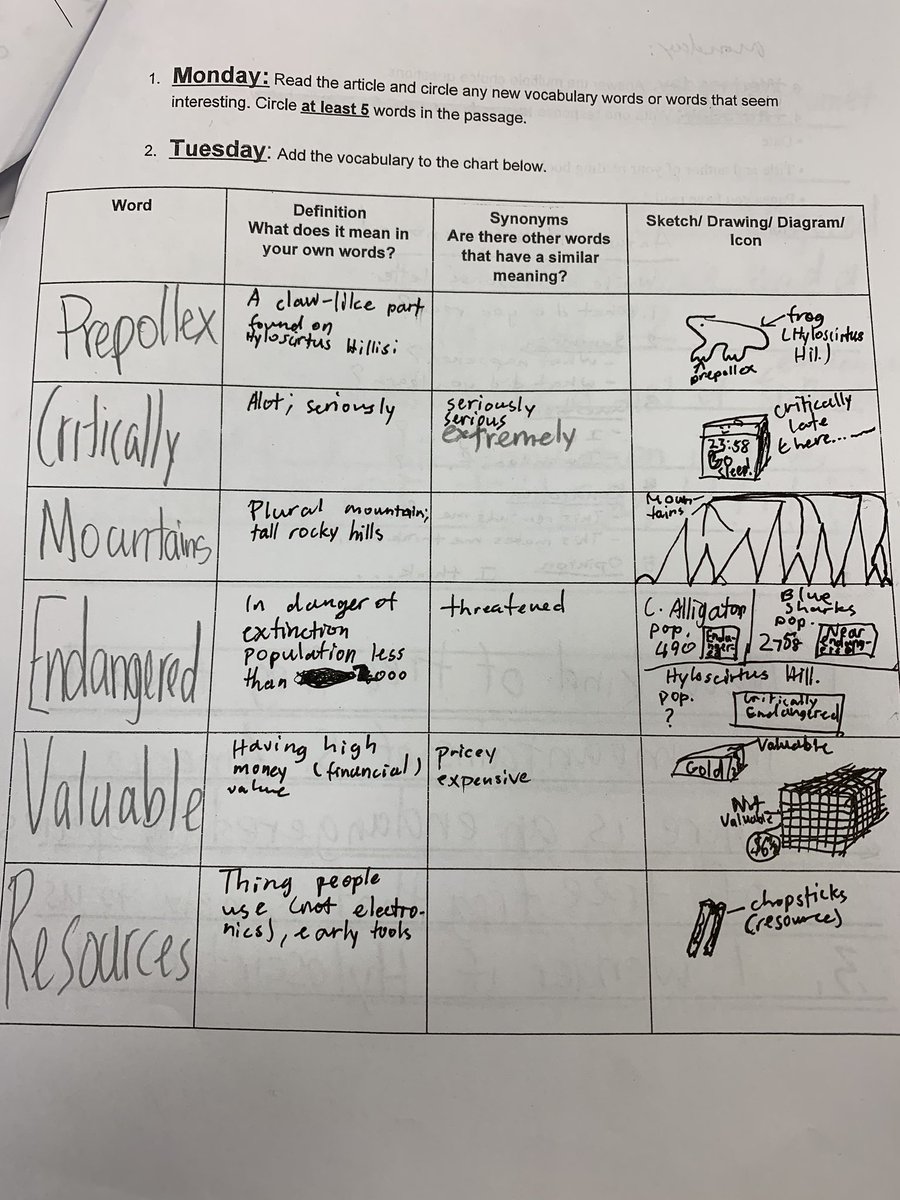 1. Monday: Read the article and circle any new vocabulary words or words that seem
interesting. Circle at least 5 words in the passage.
2. Tuesday: Add the vocabulary to the chart below.
Word
Definition
What does it mean in
your own words?
Synonyms
Are there other words
that have a similar
meaning?
Sketch/ Drawing/ Diagram/
Icon
Prepollex
A claw-like part
found on
Hyloscirtus Hillisi
frog
(Hyloscirtus
Hil.)
prepollex
Critically
Alot; seriously
seriously
serious
extremely
23:58
Go
sleep.
critically
late
there...
Mountains
Plural mountain;
tall rocky hills
Moun-
tains
Endangered
In danger of
extinction
population less
than
threatened
C. Alligator
pop.
490
Enda-
nger-
ed
Blue
Sharks
pop.
2758
Near
endang-
ered
Hyloscirtus Hill.
pop.
?
Critically
Endangered
Valuable
Having high
money (financial)
value
pricey
expensive
Gold
Valuable
Not
Valuable
Resources
Thing people
use (not electro-
nics), early tools
chopsticks
(resource)